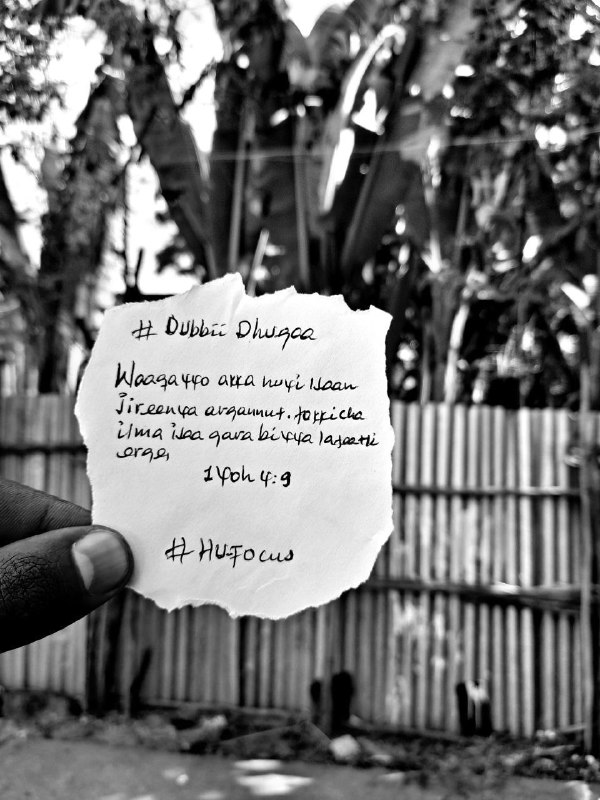 # Dubbii Dhugaa
Waaqayyo akka nuyi isaan
jireenya argannut. tokkicha
ilma isaa gara biyya lafaatti
erge,
1Yoh 4:9
# HU-Focus